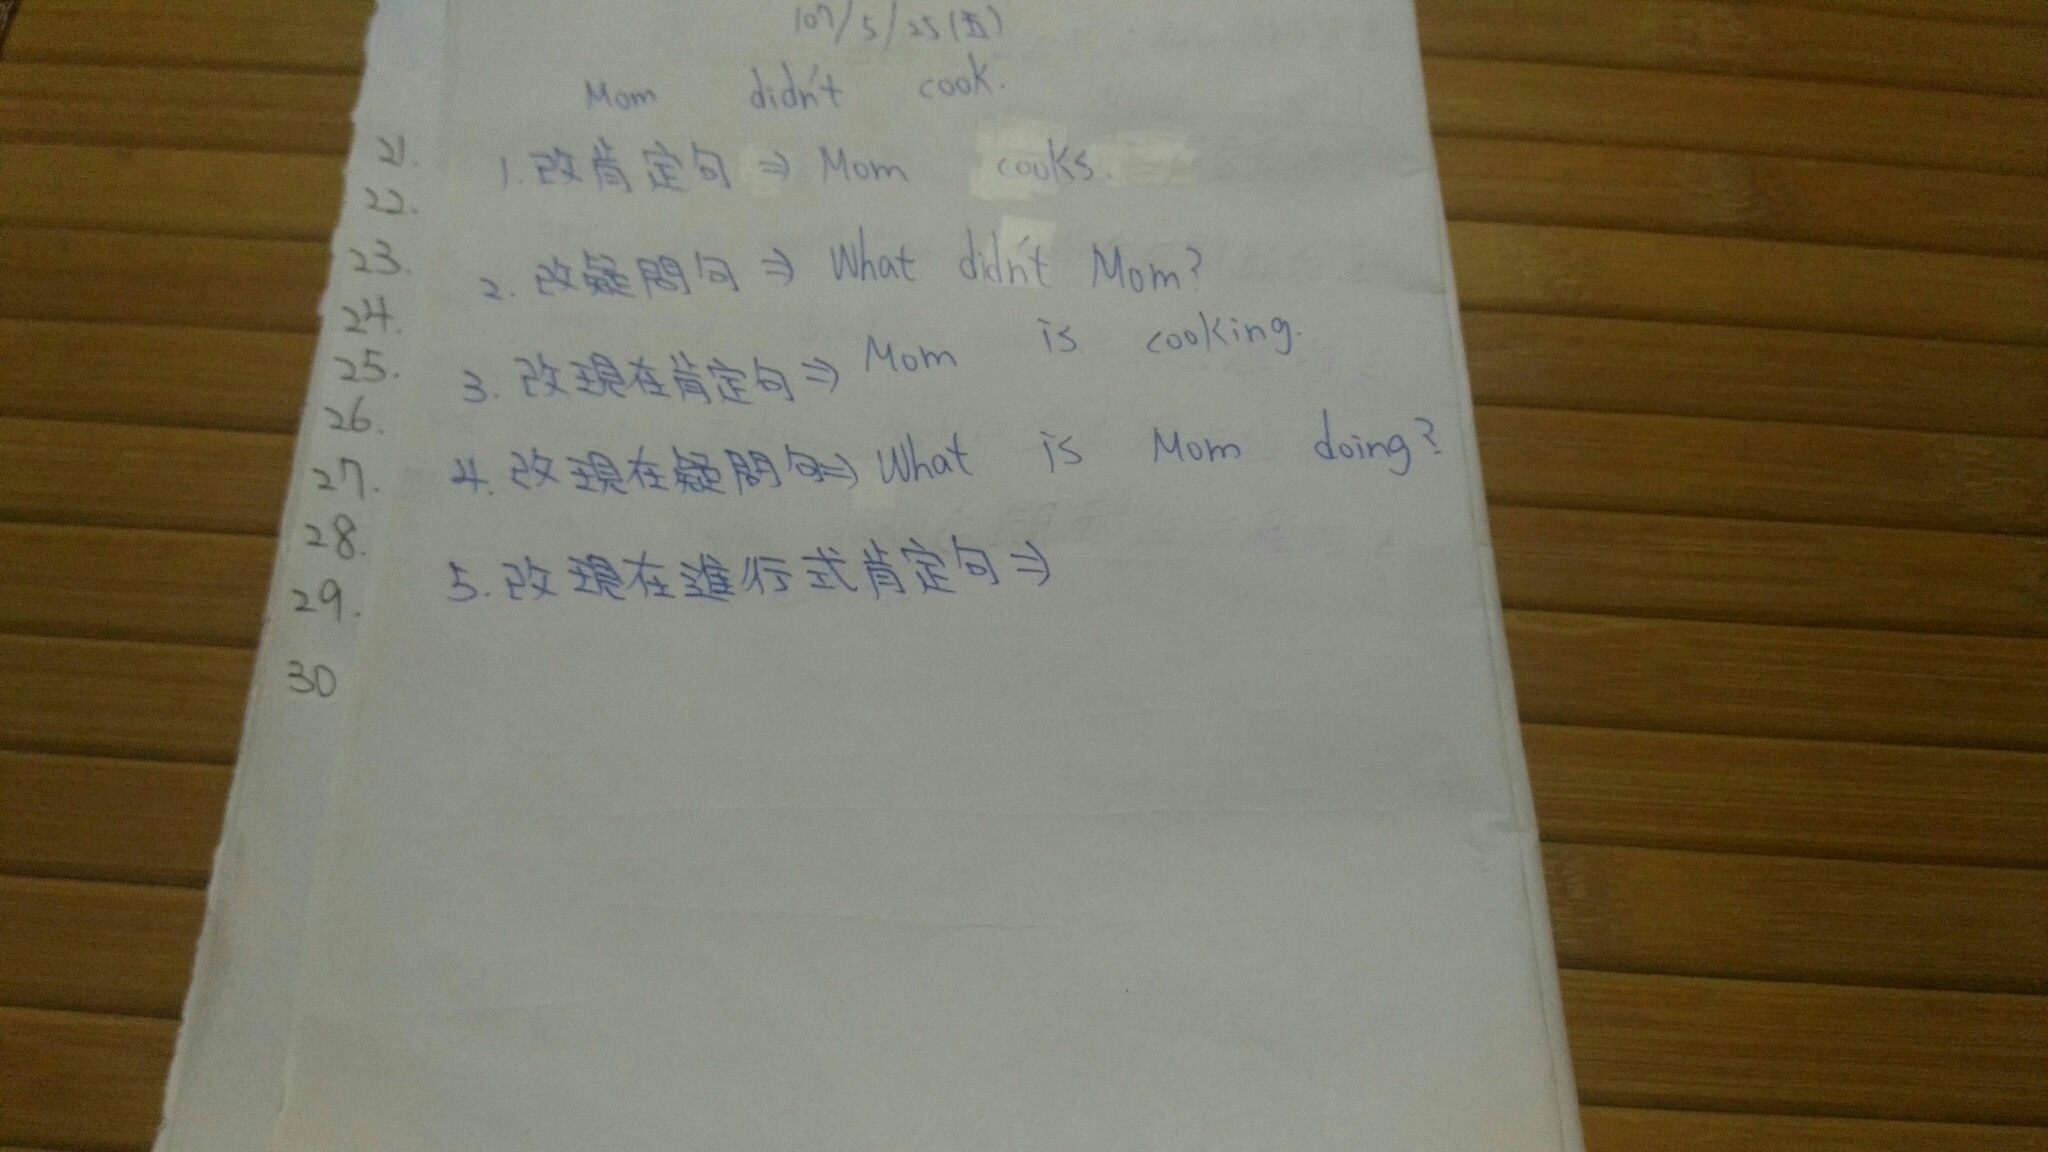 107/5/25(五)
Mom didn't cook.
21. 1. 改肯定句 ⇒ Mom cooks.
22.
23. 2. 改疑問句 ⇒ What didn't Mom?
24.
25. 3. 改現在肯定句 ⇒ Mom is cooking.
26.
27. 4. 改現在疑問句 ⇒ What is Mom doing?
28.
29. 5. 改現在進行式肯定句 ⇒
30